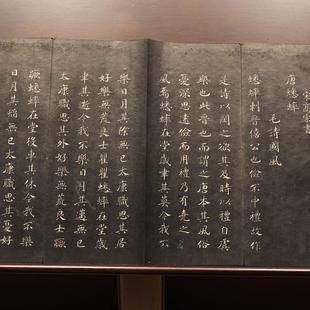 唐蟋蟀
毛詩國風
蟋蟀刺晉僖公也儉不中禮故作
是詩以閔之欲其及時以禮自虞
樂也此晉也而謂之唐本其風俗
憂深思遠儉而用禮乃有堯之
風焉蟋蟀在堂歲聿其莫今我不
樂日月其除無已太康職思其居
好樂無荒良士瞿瞿蟋蟀在堂歲
聿其逝今我不樂日月其邁無已
太康職思其外好樂無荒良士蹶
蹶蟋蟀在堂役車其休今我不樂
日月其慆無已太康職思其憂好